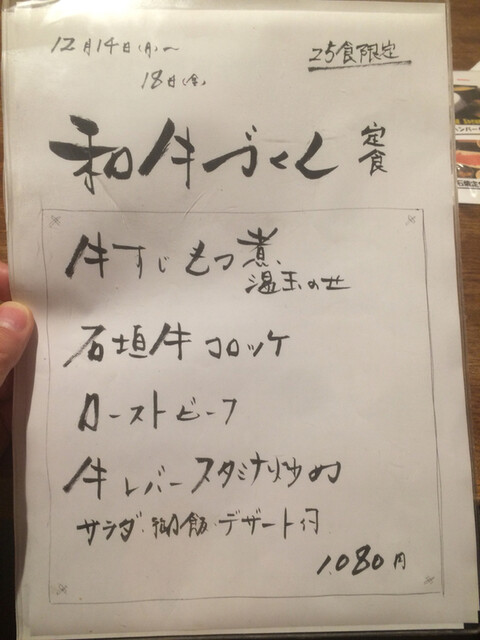 12月14日(月)～
18日(金)
25食限定
和牛づくし 定食
牛すじもつ煮
温玉のせ
石垣牛コロッケ
ローストビーフ
牛レバースタミナ炒め
サラダ・御飯・デザート付
1,080円